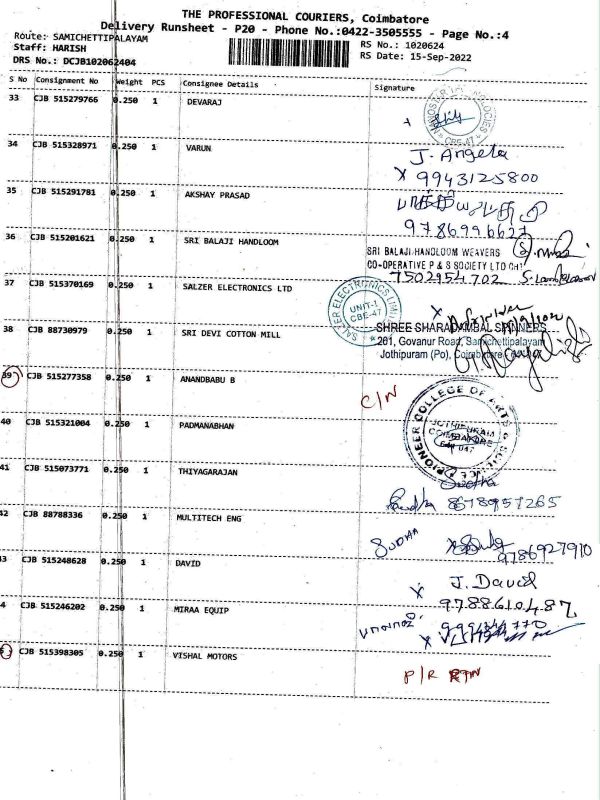 THE PROFESSIONAL COURIERS, Coimbatore
Delivery Runsheet - P20 - Phone No.:0422-3505555 - Page No.:4
Route: SAMICHETTIPALAYAM
RS No.: 1020624
Staff: HARISH
RS Date: 15-Sep-2022
DRS No.: DCJB102062404
S No Consignment No Weight PCS Consignee Details Signature
33 CJB 515279766 0.250 1 DEVARAJ
CBE-47
34 CJB 515328971 0.250 1 VARUN
J. Angela
X 9943125800
35 CJB 515291781 0.250 1 AKSHAY PRASAD
9786996627
36 CJB 515201621 0.250 1 SRI BALAJI HANDLOOM
SRI BALAJI HANDLOOM WEAVERS
CO-OPERATIVE P & S SOCIETY LTD
7502954702
37 CJB 515370169 0.250 1 SALZER ELECTRONICS LTD
SALZER ELECTRONICS LIMITED
UNIT-1
CBE-47
38 CJB 88730979 0.250 1 SRI DEVI COTTON MILL
SHREE SHARADAMBAL SPINNERS
201, Govanur Road, Samichettipalayam
Jothipuram (Po), Coimbatore
39 CJB 515277358 0.250 1 ANANDBABU B
C/N
40 CJB 515321004 0.250 1 PADMANABHAN
PIONEER COLLEGE OF ARTS & SCIENCE
JOTHIPURAM
COIMBATORE
641 047
41 CJB 515073771 0.250 1 THIYAGARAJAN
Sudha 8678957265
42 CJB 88788336 0.250 1 MULTITECH ENG
SUDHA
9786927910
3 CJB 515248628 0.250 1 DAVID
X J. David
9788610487
4 CJB 515246202 0.250 1 MIRAA EQUIP
5 CJB 515398305 0.250 1 VISHAL MOTORS
P/R RTN